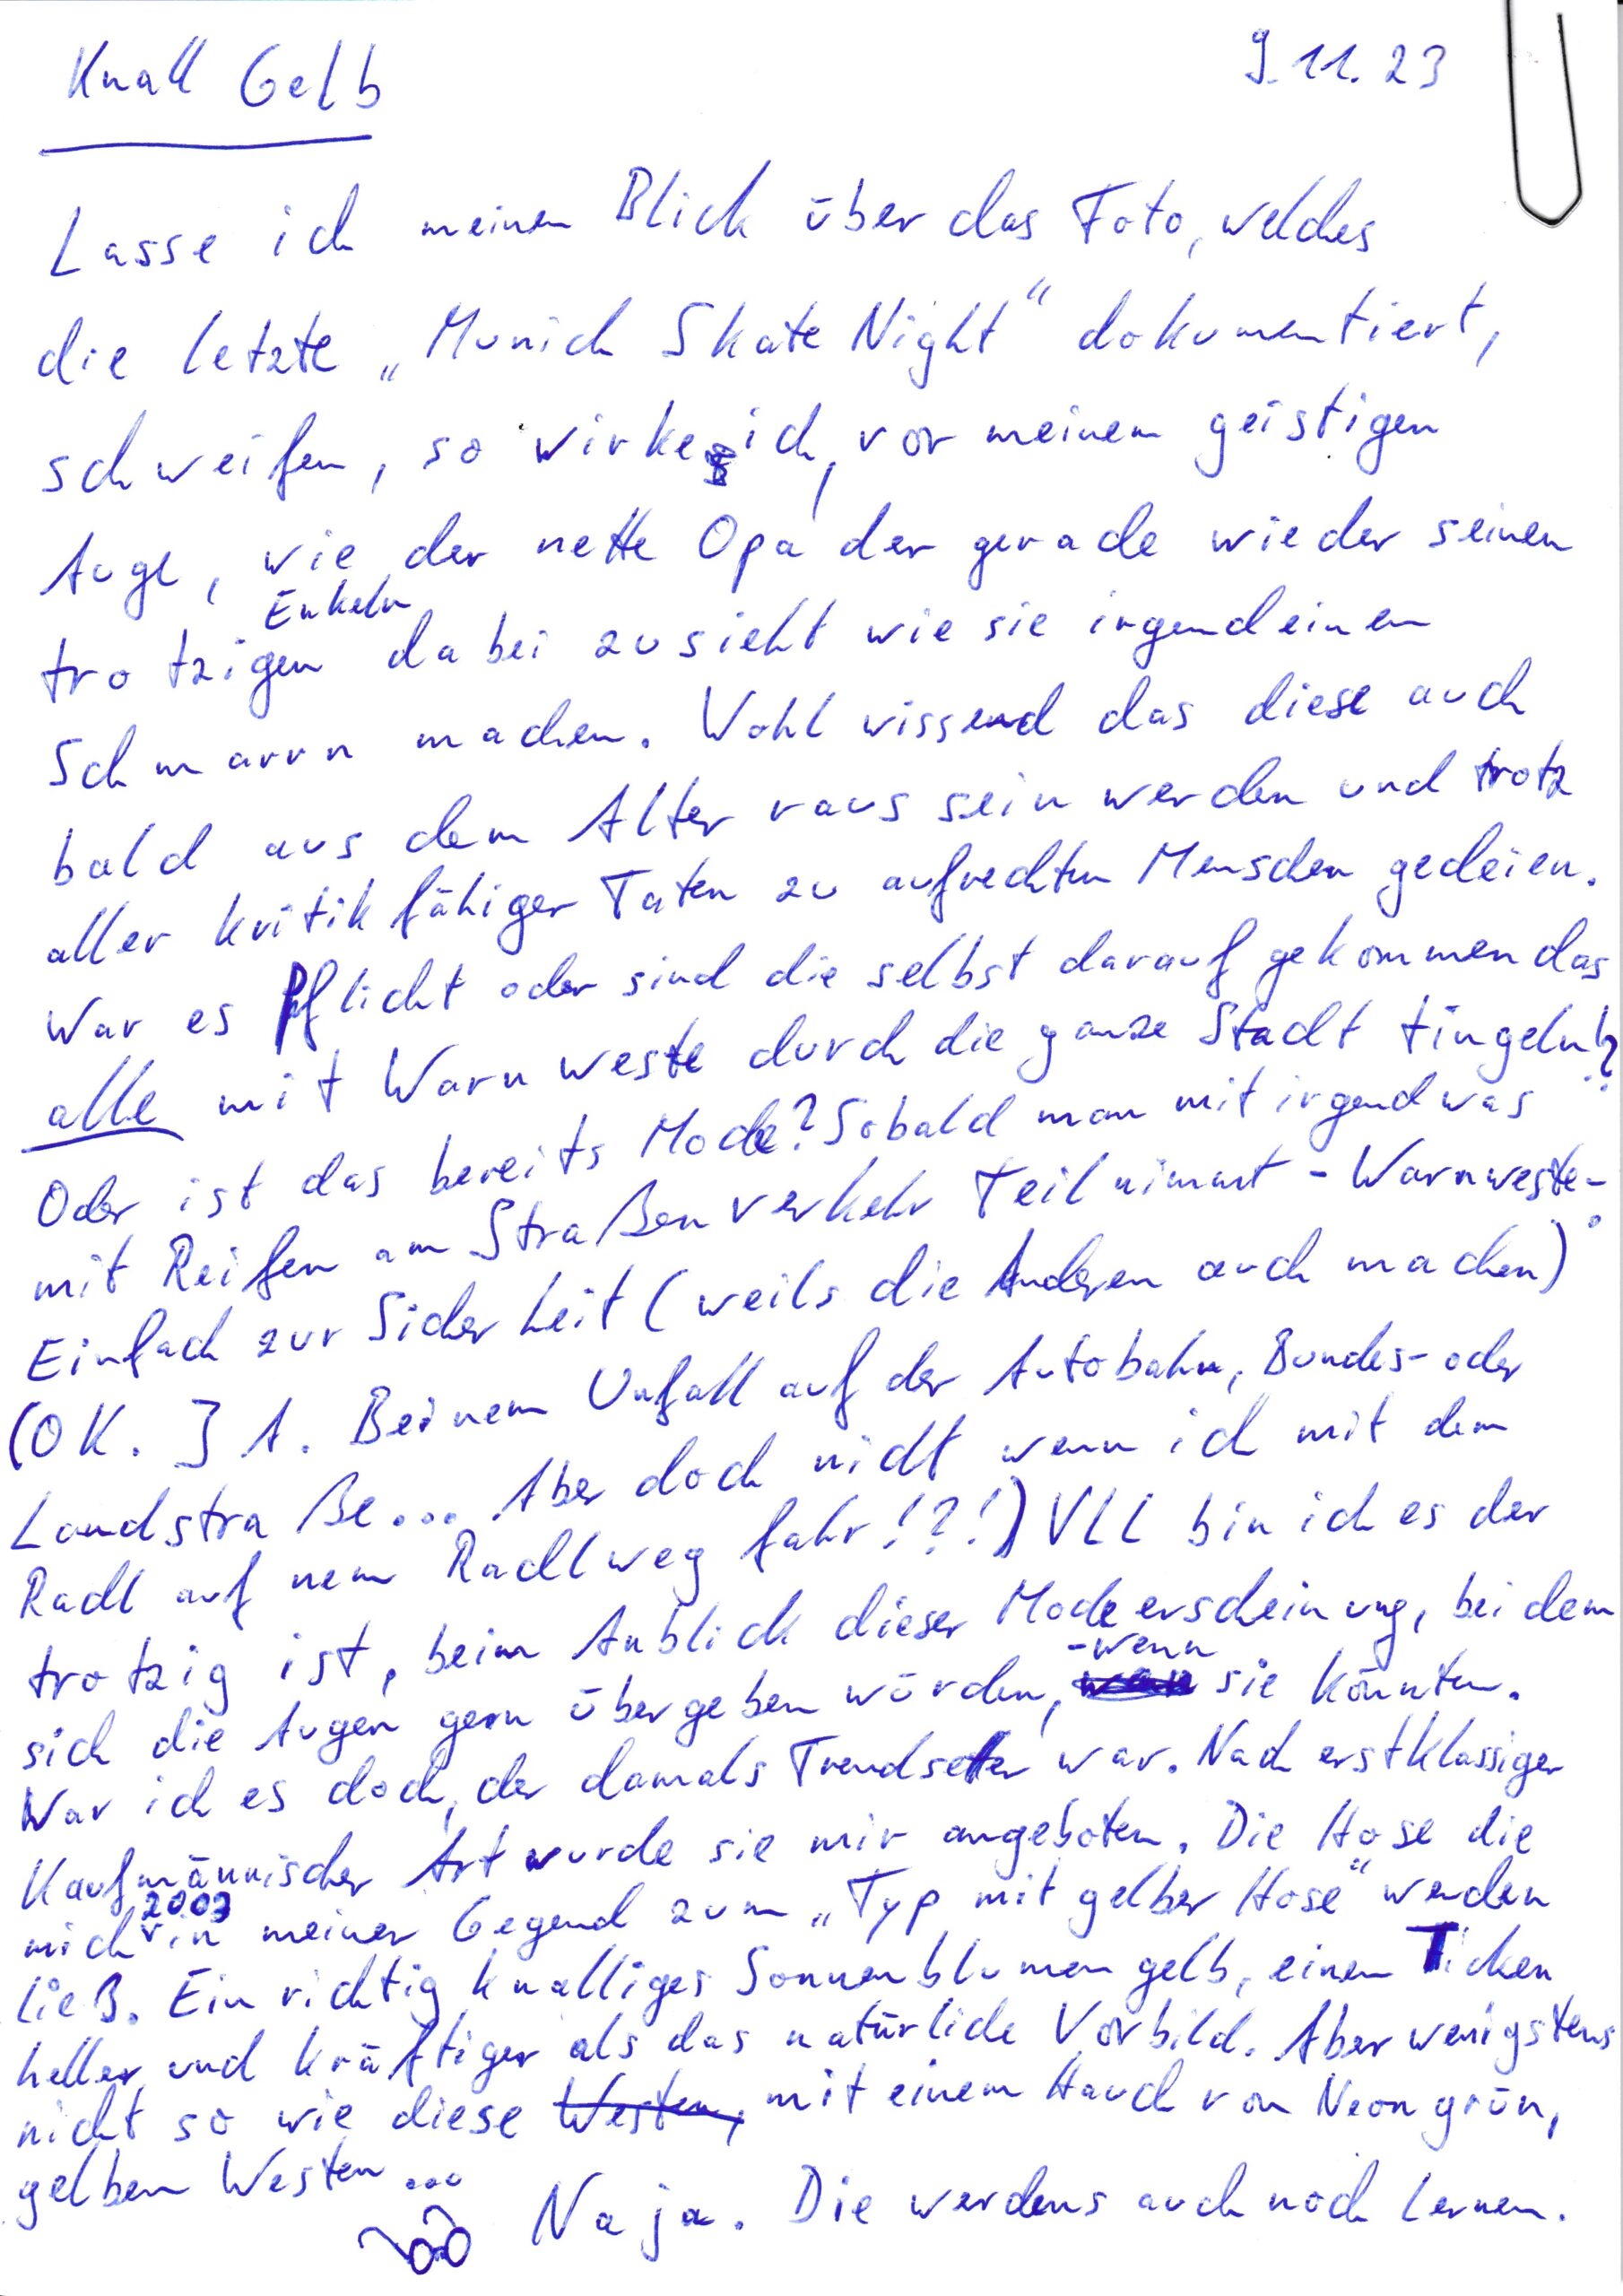 Knall Gelb
9.11.23
Lasse ich meinen Blick über das Foto, welches
die letzte „Munich Skate Night" dokumentiert,
schweifen, so wirke ich, vor meinem geistigen
Auge, wie der nette Opa der gerade wieder seinen
Enkeln
trotzigen dabei zusieht wie sie irgendeinen
Schmarrn machen. Wohl wissend das diese auch
bald aus dem Alter raus sein werden und trotz
aller kritikfähiger Taten zu aufrechten Menschen gedeien.
War es Pflicht oder sind die selbst darauf gekommen das
alle mit Warnweste durch die ganze Stadt tingeln?
Oder ist das bereits Mode? Sobald man mit irgendwas
mit Reifen am Straßenverkehr Teil nimmt - Warnweste-
Einfach zur Sicherheit (weils die Anderen auch machen)
(OK. JA. Bei nem Unfall auf der Autobahn, Bundes- oder
Landstraße... Aber doch nicht wenn ich mit dem
Radl auf nem Radlweg fahr!?!) Vll bin ich es der
trotzig ist, beim Anblick dieser Modeerscheinung, bei dem
-wenn
sich die Augen gern übergeben würden, sie könnten.
War ich es doch, der damals Trendsetter war. Nach erstklassiger
Kaufmännischer Art wurde sie mir angeboten. Die Hose die
2003
mich in meiner Gegend zum „Typ mit gelber Hose" werden
ließ. Ein richtig knalliges Sonnenblumen gelb, einen Ticken
heller und kräftiger als das natürliche Vorbild. Aber wenigstens
nicht so wie diese Westen, mit einem Hauch von Neongrün,
gelben Westen...
Naja. Die werdens auch noch lernen.